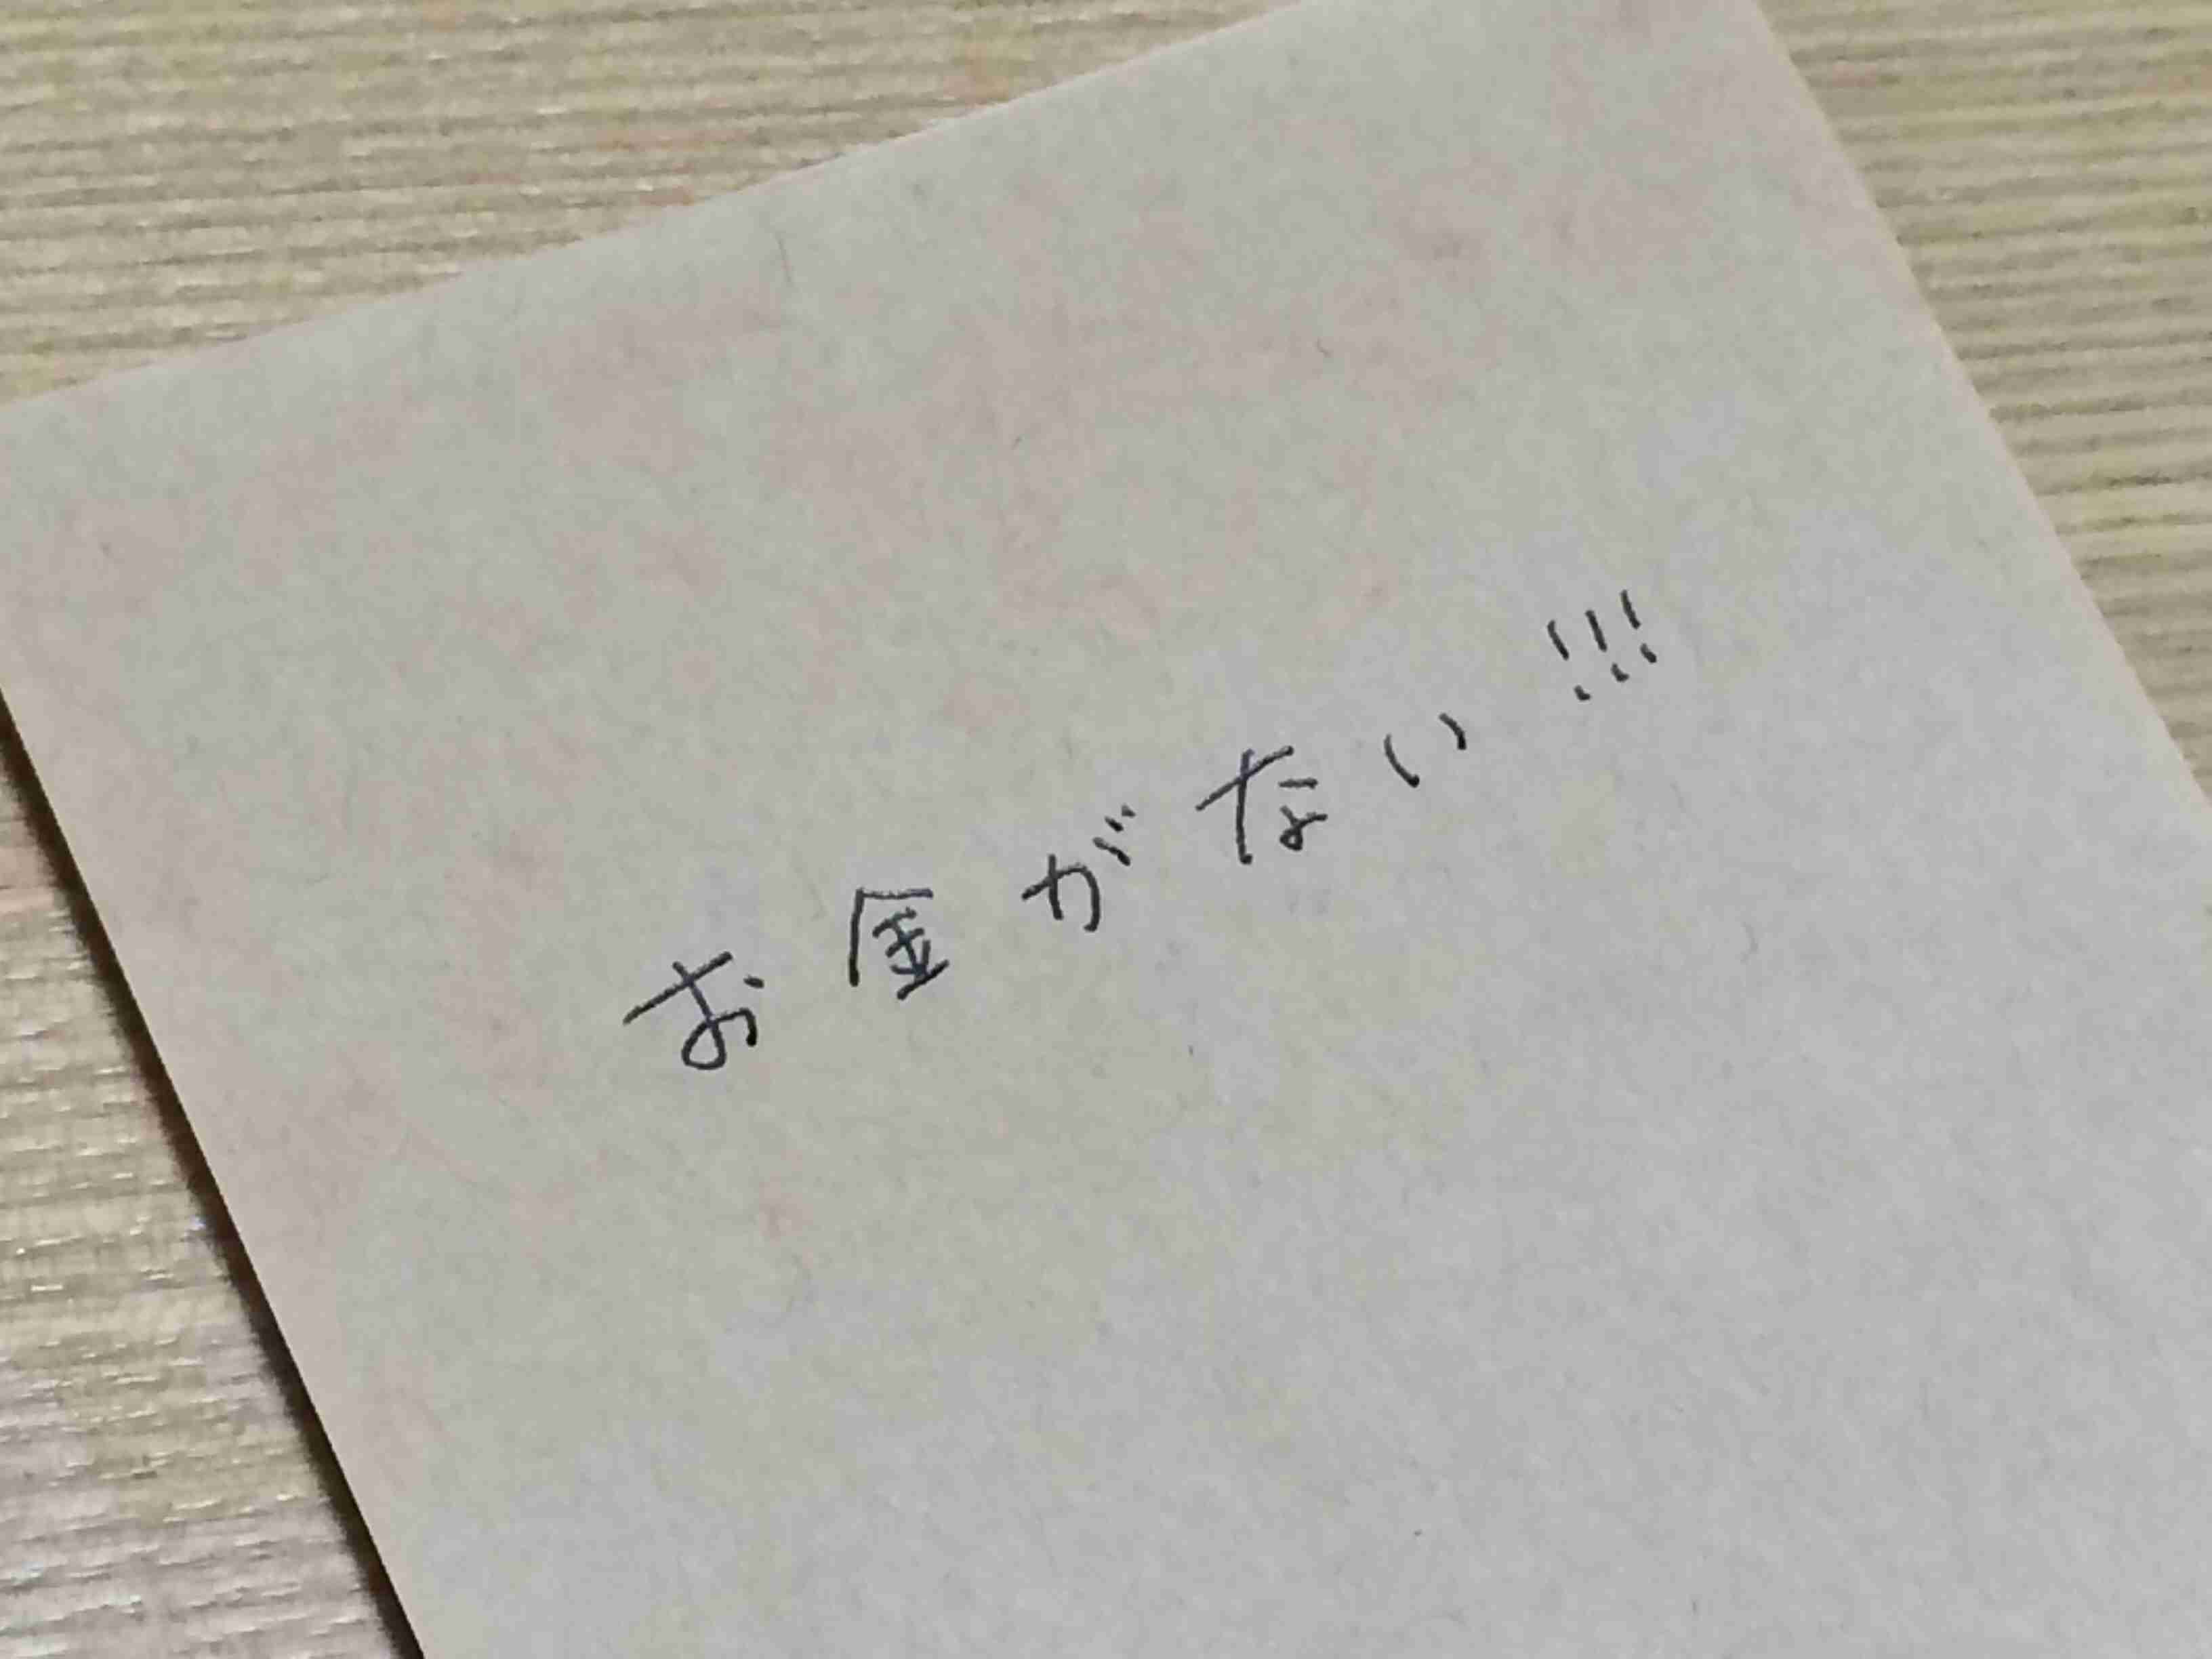 お金がない!!!